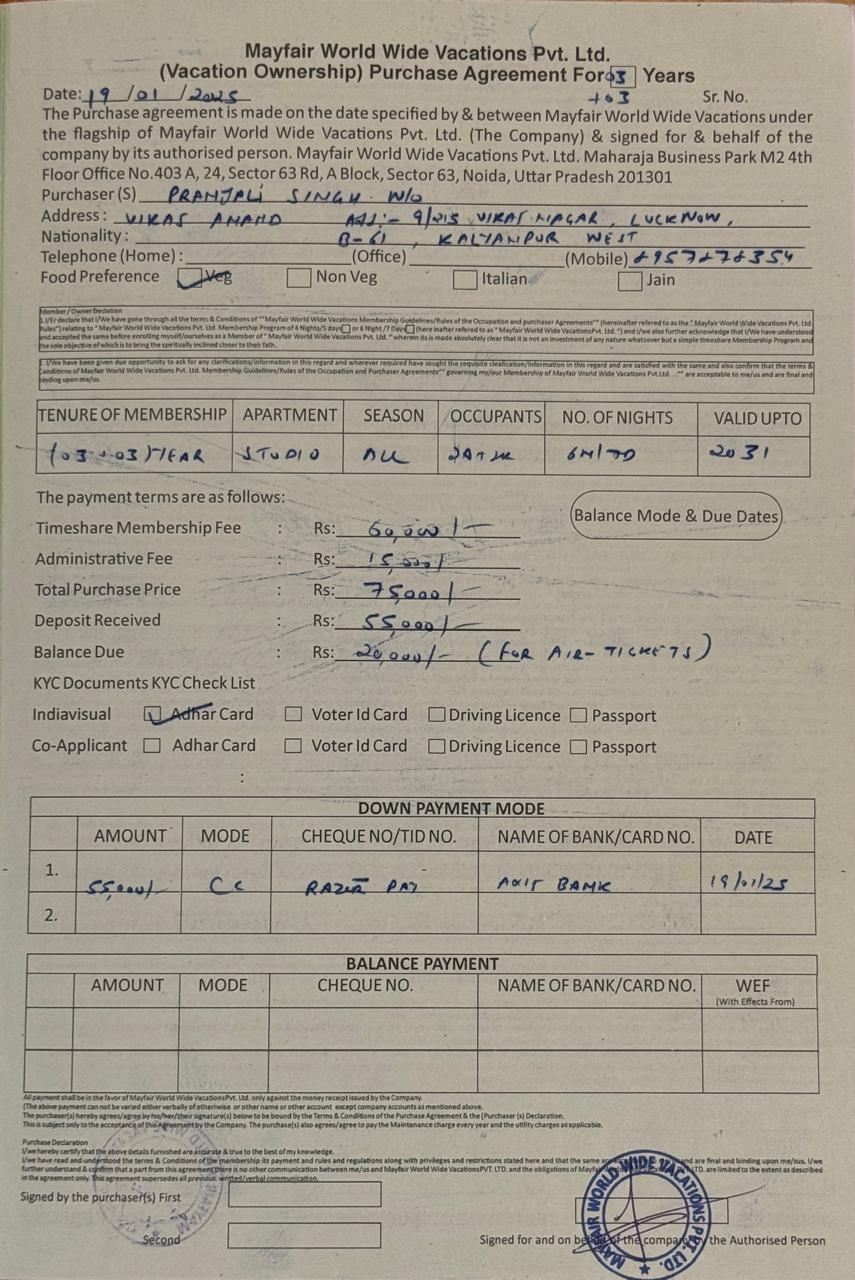 Mayfair World Wide Vacations Pvt. Ltd.
(Vacation Ownership) Purchase Agreement For 03 Years
+03
Date: 19 / 01 / 2025 Sr. No.
The Purchase agreement is made on the date specified by & between Mayfair World Wide Vacations under
the flagship of Mayfair World Wide Vacations Pvt. Ltd. (The Company) & signed for & behalf of the
company by its authorised person. Mayfair World Wide Vacations Pvt. Ltd. Maharaja Business Park M2 4th
Floor Office No.403 A, 24, Sector 63 Rd, A Block, Sector 63, Noida, Uttar Pradesh 201301
Purchaser (S) PRANJALI SINGH W/O
Address : VIKAS ANAND Add:- 9/215 VIKAS NAGAR, LUCKNOW,
Nationality : B-61, KALYANPUR WEST
Telephone (Home) : (Office) (Mobile)
Food Preference Veg Non Veg Italian Jain
Member / Owner Declation
1. I/Er declare that I/We have gone through all the terms & Conditions of ""Mayfair World Wide Vacations Membership Guidelines/Rules of the Occupation and purchaser Agreements"" (hereinafter refered to as the "Mayfair World Wide Vacations Pvt. Ltd
Rules") relating to "Mayfair World Wide Vacations Pvt. Ltd. Membership Program of 4 Nights/5 days or 6 Night /7 Days (here inafter refered to as "Mayfair World Wide VacationsPvt. Ltd.") and I/We also further acknowledge that I/We have understood
and accepted the same before enrolling myself/ourselves as a Member of "Mayfair World Wide Vacations Pvt. Ltd." wherein its is made absolutely clear that it is not an investment of any nature whatsoever but a simple timeshare Membership Program and
the sole objective of which is to bring the spiritually inclined closer to their fath.
I/We have been given due opportunity to ask for any clarifications/information in this regard and wherever required have sought the requisite clearification/information in this regard and are satisfied with the same and also confirm that the terms &
Conditions of Mayfair World Wide Vacations Pvt. Ltd. Membership Guidelines/Rules of the Occupation and Purchaser Agreements"" governing my/our Membership of Mayfair World Wide Vacations Pvt.Ltd. .."" are acceptable to me/us and are final and
binding upon me/us.
TENURE OF MEMBERSHIP APARTMENT SEASON OCCUPANTS NO. OF NIGHTS VALID UPTO
(03+03) YEAR STUDIO ALL 2A+2K 6N/7D 2031
The payment terms are as follows:
Balance Mode & Due Dates
Timeshare Membership Fee : Rs: 60,000/-
Administrative Fee : Rs: 15,000/-
Total Purchase Price : Rs: 75,000/-
Deposit Received : Rs: 55,000/-
Balance Due : Rs: 20,000/- (FOR AIR-TICKETS)
KYC Documents KYC Check List
Indiavisual Adhar Card Voter Id Card Driving Licence Passport
Co-Applicant Adhar Card Voter Id Card Driving Licence Passport
:
DOWN PAYMENT MODE
AMOUNT MODE CHEQUE NO/TID NO. NAME OF BANK/CARD NO. DATE
1. 55,000/- CC RAZER PAY AXIS BANK 19/01/25
2.
BALANCE PAYMENT
AMOUNT MODE CHEQUE NO. NAME OF BANK/CARD NO. WEF
(With Effects From)
All payment shall be in the favor of Mayfair World Wide VacationsPvt. Ltd. only against the money receipt issued by the Company.
(The above payment can not be varied either verbally of otheriwise or other name or other account except company accounts as mentioned above.
The purchaser(s) hereby agrees/agree by his/her/their signature(s) below to be bound by the Terms & Conditions of the Purchase Agreement & the (Purchaser (s) Declaration.
This is subject only to the acceptance of this Agreement by the Company. The purchase(s) also agrees/agree to pay the Maintenance charge every year and the utility charges as applicable.
Purchase Declaration
I/we hereby certify that the above details furnished are accurate & true to the best of my knowledge.
I/We have read and understood the terms & Conditions of the membership its payment and rules and regulations along with privileges and restrictions stated here and that the same and are final and binding upon me/sus. I/we
further understand & confirm that a part from this agreement there is no other communication between me/us and Mayfair World Wide VacationsPVT. LTD. and the obligations of Mayfair LTD. are limited to the extent as described
in the agreement only. This agreement supersedes all previous, written/verbal communication.
Signed by the purchaser(s) First
Second
Signed for and on behalf of the company by the Authorised Person
MAYFAIR WORLD WIDE VACATIONS PVT. LTD.